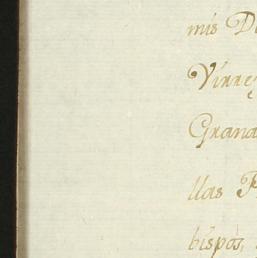 mis D
Virrey
Grana
llas
bispos,